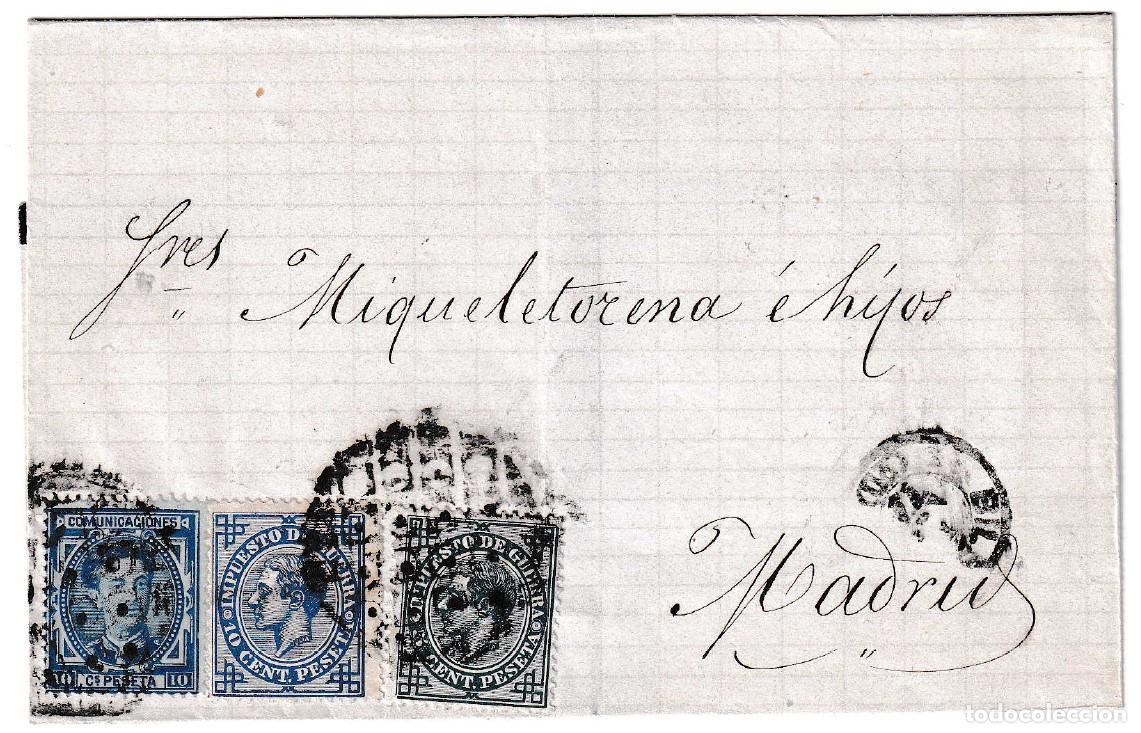 Sres Miqueletorena é hijos
Madrid
COMUNICACIONES
10 Cs PESETA 10
IMPUESTO DE GUERRA
10 CENT. PESETA
IMPUESTO DE GUERRA
CENT. PESETA
todocoleccion